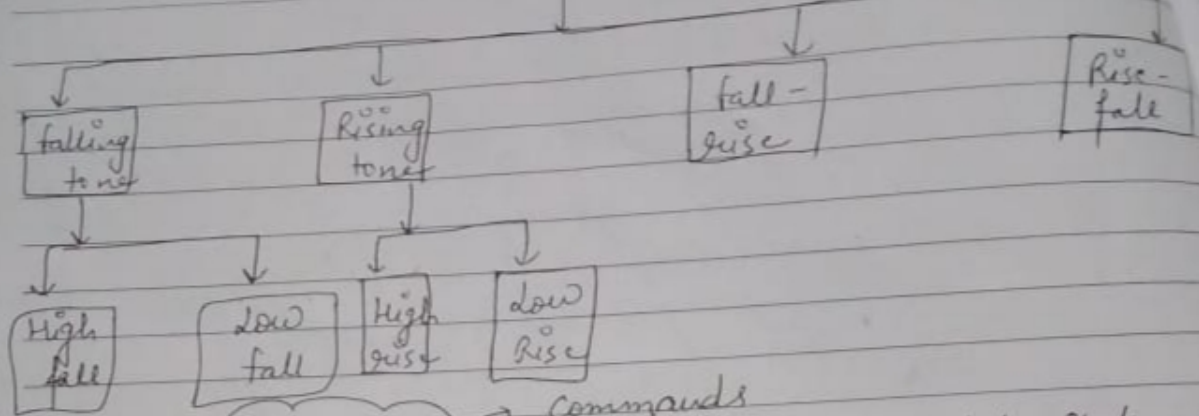 falling
tone
Rising
tone
fall -
rise
Rise -
fall
High
fall
Low
fall
High
rise
Low
Rise
→ Commands